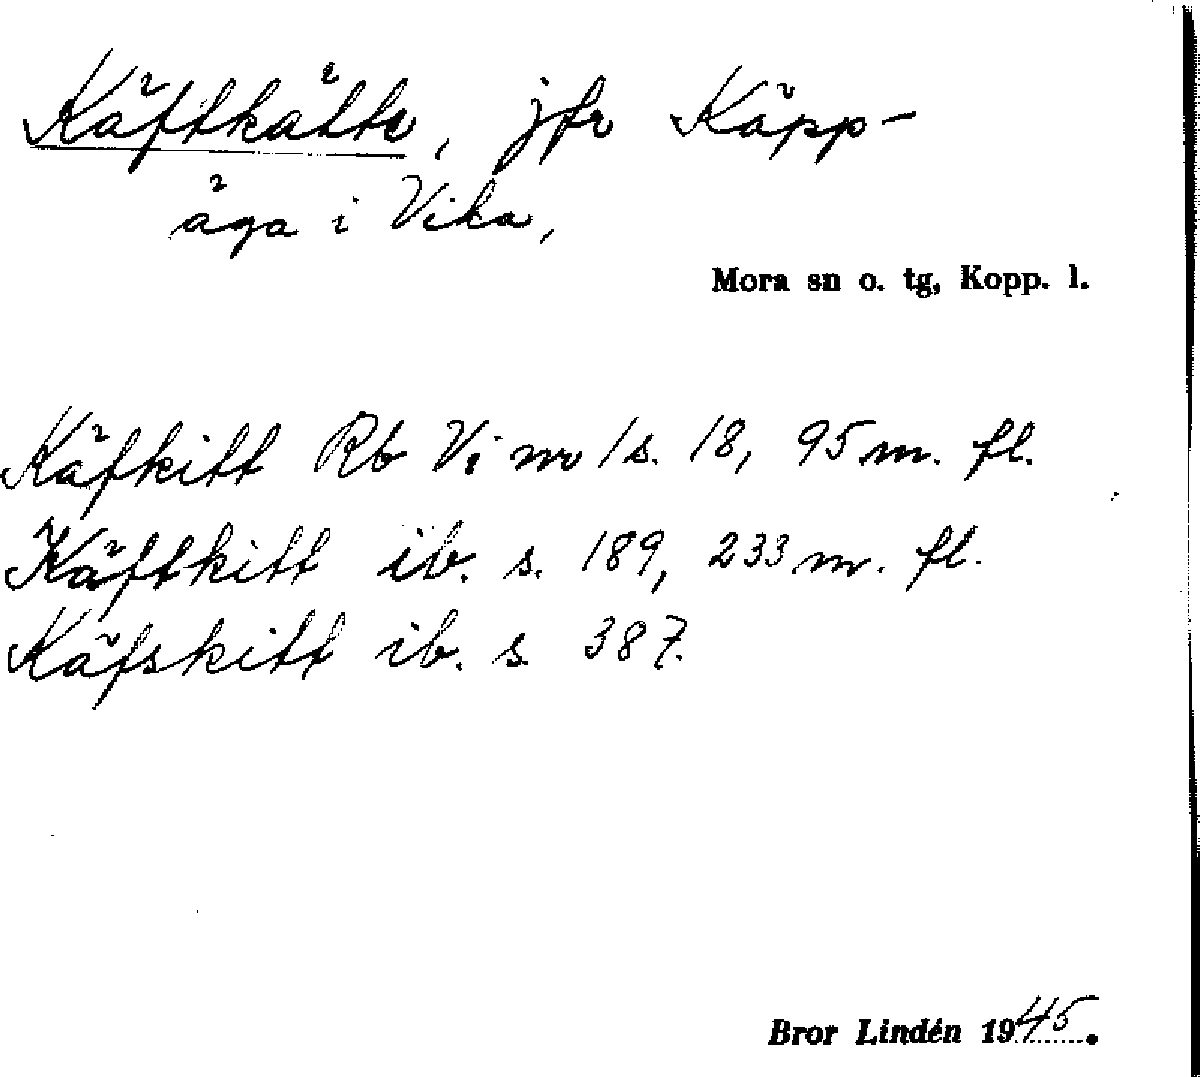 Käftkätte, jfr Käpp-
äga i Vika,
Mora sn o. tg, Kopp. l.
Käfkitt Rb Vi nr 1 s. 18, 95 m. fl.
Käftkitt ib. s. 189, 233 m. fl.
Käfskitt ib. s. 387.
Bror Lindén 1945.